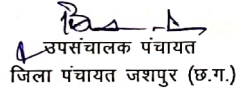 उपसंचालक पंचायत
जिला पंचायत जशपुर (छ.ग.)